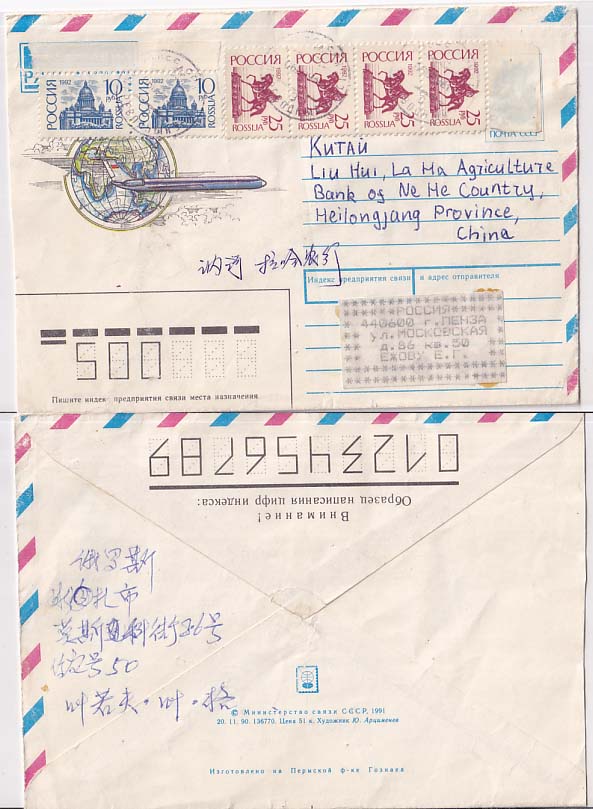 РОССИЯ 1992
РОССИЯ 1992
РОССИЯ 1992
РОССИЯ 1992
1992 РОССИЯ
1992 РОССИЯ
10 РУБ
10 РУБ
ROSSIJA
ROSSIJA
ROSSIJA 25
ROSSIJA 25
ROSSIJA 25
ROSSIJA 25
ПОЧТА СССР
Китай
Liu Hui, La Ha Agriculture
Bank of Ne He Country,
Heilongjang Province,
China
讷河 拉哈农行
Индекс предприятия связи и адрес отправителя
РОССИЯ
440600 г.ПЕНЗА
ул.МОСКОВСКАЯ
д.86 кв.50
ЕЖОВУ Е.Г.
500
Пишите индекс предприятия связи места назначения
0123456789
Образец написания цифр индекса:
Внимание!
俄罗斯
扎市
号50
叶若夫·叶·格
© Министерство связи СССР, 1991
20. 11. 90. 136770. Цена 51 к. Художник Ю. Арцименев
Изготовлено на Пермской ф-ке Гознака